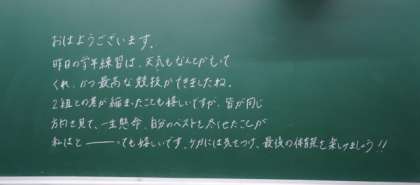 おはようございます。
昨日の学年練習は、天気もなんとかもって
くれ、かつ最高な競技ができましたね。
2組との差が縮まったことも嬉しいですが、皆が同じ
方向を見て、一生懸命、自分のベストを尽せたことが
私はと―――っても嬉しいです。ケガには気をつけ、最後の体育祭を楽しみましょう!!